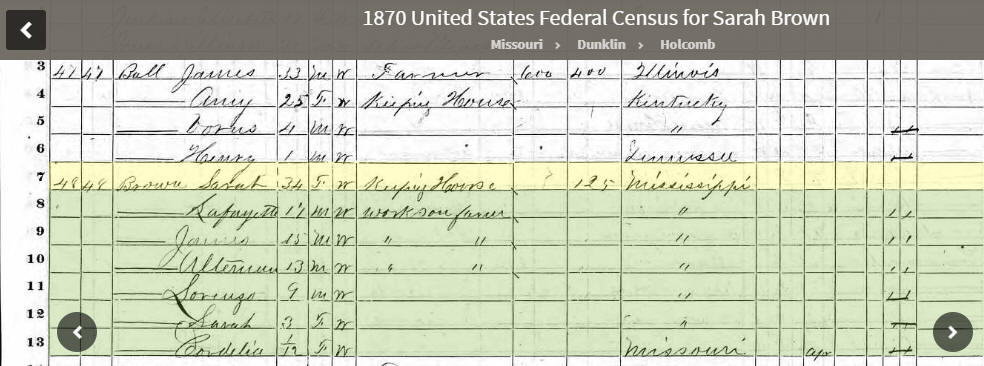 1870 United States Federal Census for Sarah Brown
Missouri > Dunklin > Holcomb
3 47 47 Ball James 33 M W Farmer 600 400 Illinois
4 —— Amy 25 F W Keeping House Kentucky
5 —— 4 M W "
6 —— Henry 1 M W Tennessee
7 48 48 Brown Sarah 34 F W Keeping House 125 Mississippi
8 —— Lafayette 17 M W works on farm " 1 1
9 —— James 15 M W " " " 1 1
10 —— 13 M W " " " 1 1
11 —— Lorenzo 9 M W "
12 —— Sarah 3 F W "
13 —— Cordelia 1/12 F W Missouri apr